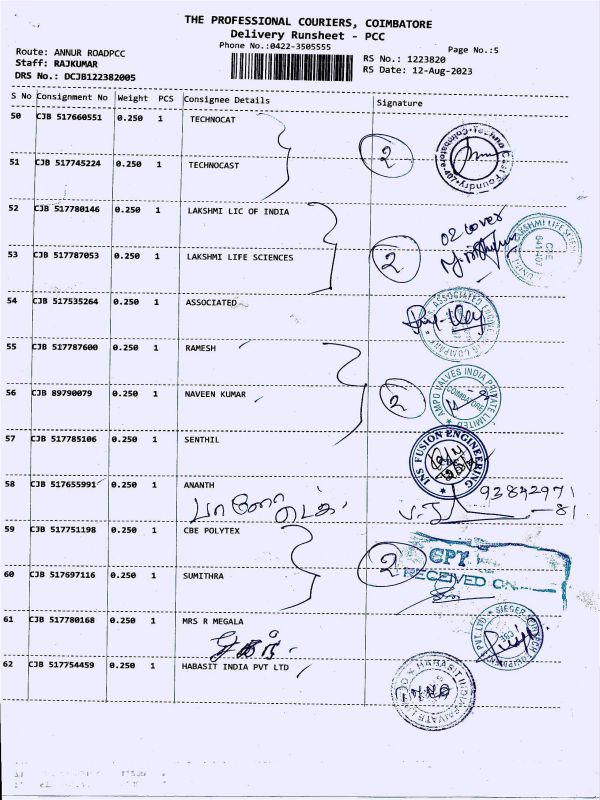 THE PROFESSIONAL COURIERS, COIMBATORE
Delivery Runsheet - PCC
Phone No.:0422-3505555
Page No.:5
Route: ANNUR ROADPCC
Staff: RAJKUMAR
DRS No.: DCJB122382005
RS No.: 1223820
RS Date: 12-Aug-2023
S No Consignment No Weight PCS Consignee Details Signature
50 CJB 517660551 0.250 1 TECHNOCAT
2
51 CJB 517745224 0.250 1 TECHNOCAST
52 CJB 517780146 0.250 1 LAKSHMI LIC OF INDIA
02 cover
53 CJB 517787053 0.250 1 LAKSHMI LIFE SCIENCES
2
LAKSHMI LIFE SCIEN
54 CJB 517535264 0.250 1 ASSOCIATED
ASSOCIATED ENGINE
COMPANY
55 CJB 517787600 0.250 1 RAMESH
56 CJB 89790079 0.250 1 NAVEEN KUMAR
2
AMPO VALVES INDIA PRIVATE LIMITED
COIMBATORE
57 CJB 517785106 0.250 1 SENTHIL
INS FUSION ENGINEERING
58 CJB 517655991 0.250 1 ANANTH
93842971
81
59 CJB 517751198 0.250 1 CBE POLYTEX
2
CPT
RECEIVED ON
60 CJB 517697116 0.250 1 SUMITHRA
61 CJB 517780168 0.250 1 MRS R MEGALA
62 CJB 517754459 0.250 1 HABASIT INDIA PVT LTD